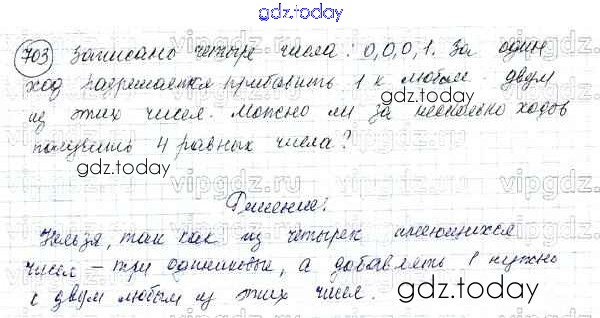 gdz.today
703 Записано четыре числа: 0,0,0,1. За один
ход разрешается прибавить 1 к любым двум
из этих чисел. Можно ли за несколько ходов
получить 4 равных числа?
Решение:
Нельзя, так как из четырех имеющихся
чисел – три одинаковы, а добавлять 1 нужно
к двум любым из этих чисел.
gdz.today
gdz.today
gdz.today
gdz.today
vipgdz.ru